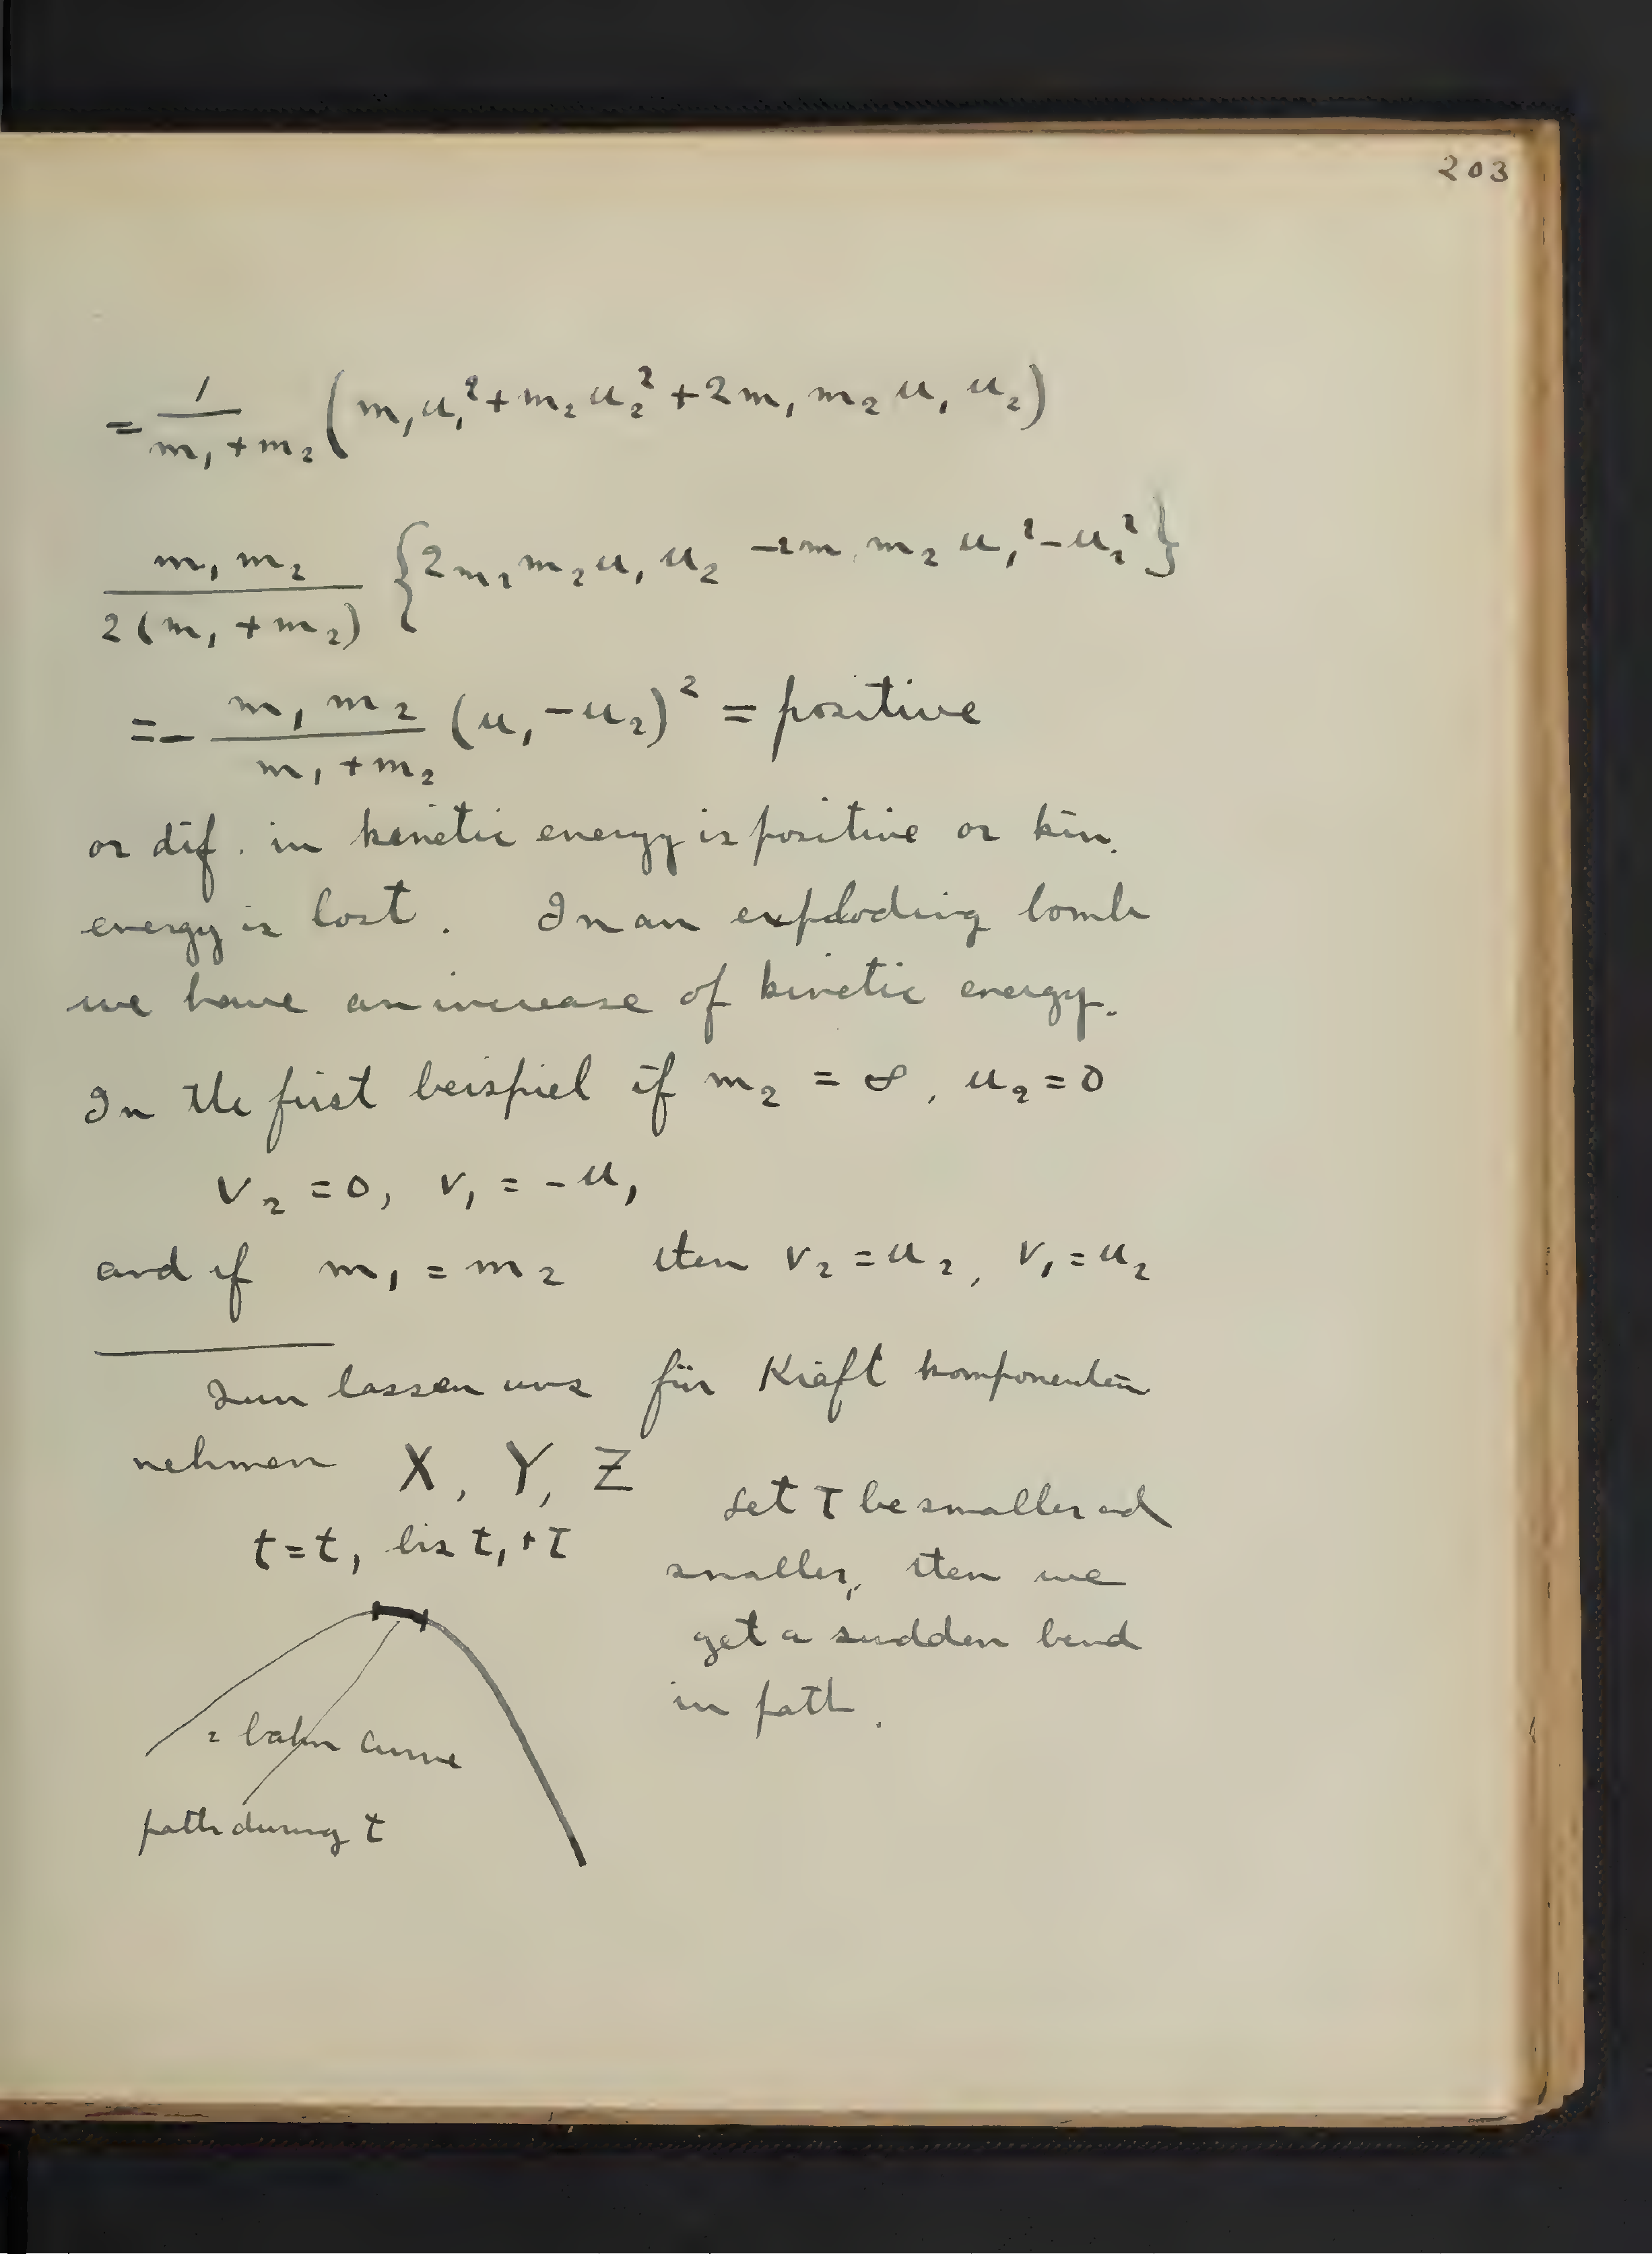 203
= 1/(m₁ + m₂) (m₁u₁² + m₂u₂² + 2m₁m₂u₁u₂)
m₁m₂/2(m₁ + m₂) {2m₁m₂u₁u₂ - 2m₁m₂u₁² - u₂²}
= - m₁m₂/(m₁ + m₂) (u₁ - u₂)² = positive
or dif. in kenetic energy is positive or kin.
energy is lost. In an exploding bomb
we have an increase of kinetic energy.
In the first beispiel if m₂ = ∞, u₂ = 0
v₂ = 0, v₁ = - u₁
and if m₁ = m₂ then v₂ = u₂, v₁ = u₂
lassen uns für Kräft komponenten
nehmen X, Y, Z
t = t₁ bis t₁ + τ
Let τ be smaller and
smaller, then we
get a sudden bend
in path.
= bahn curve
path during t